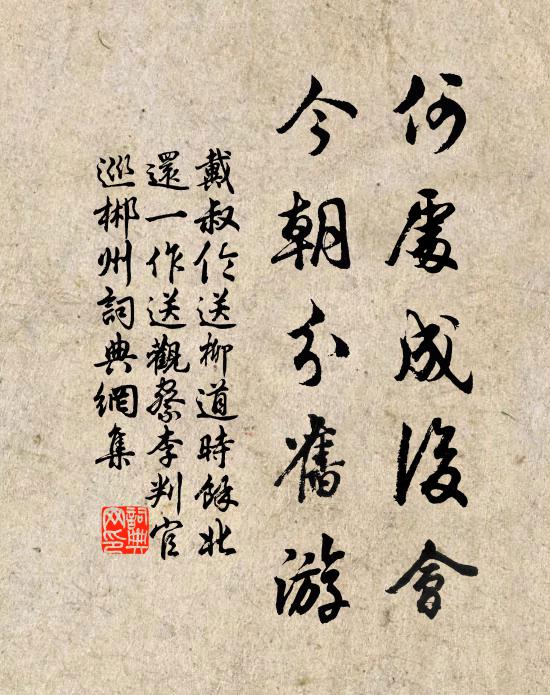 何處成後會
今朝分舊游
戴叔伦送柳道時餘北
還一作送觀察李判官
巡郴州詞典網集
詞典网印